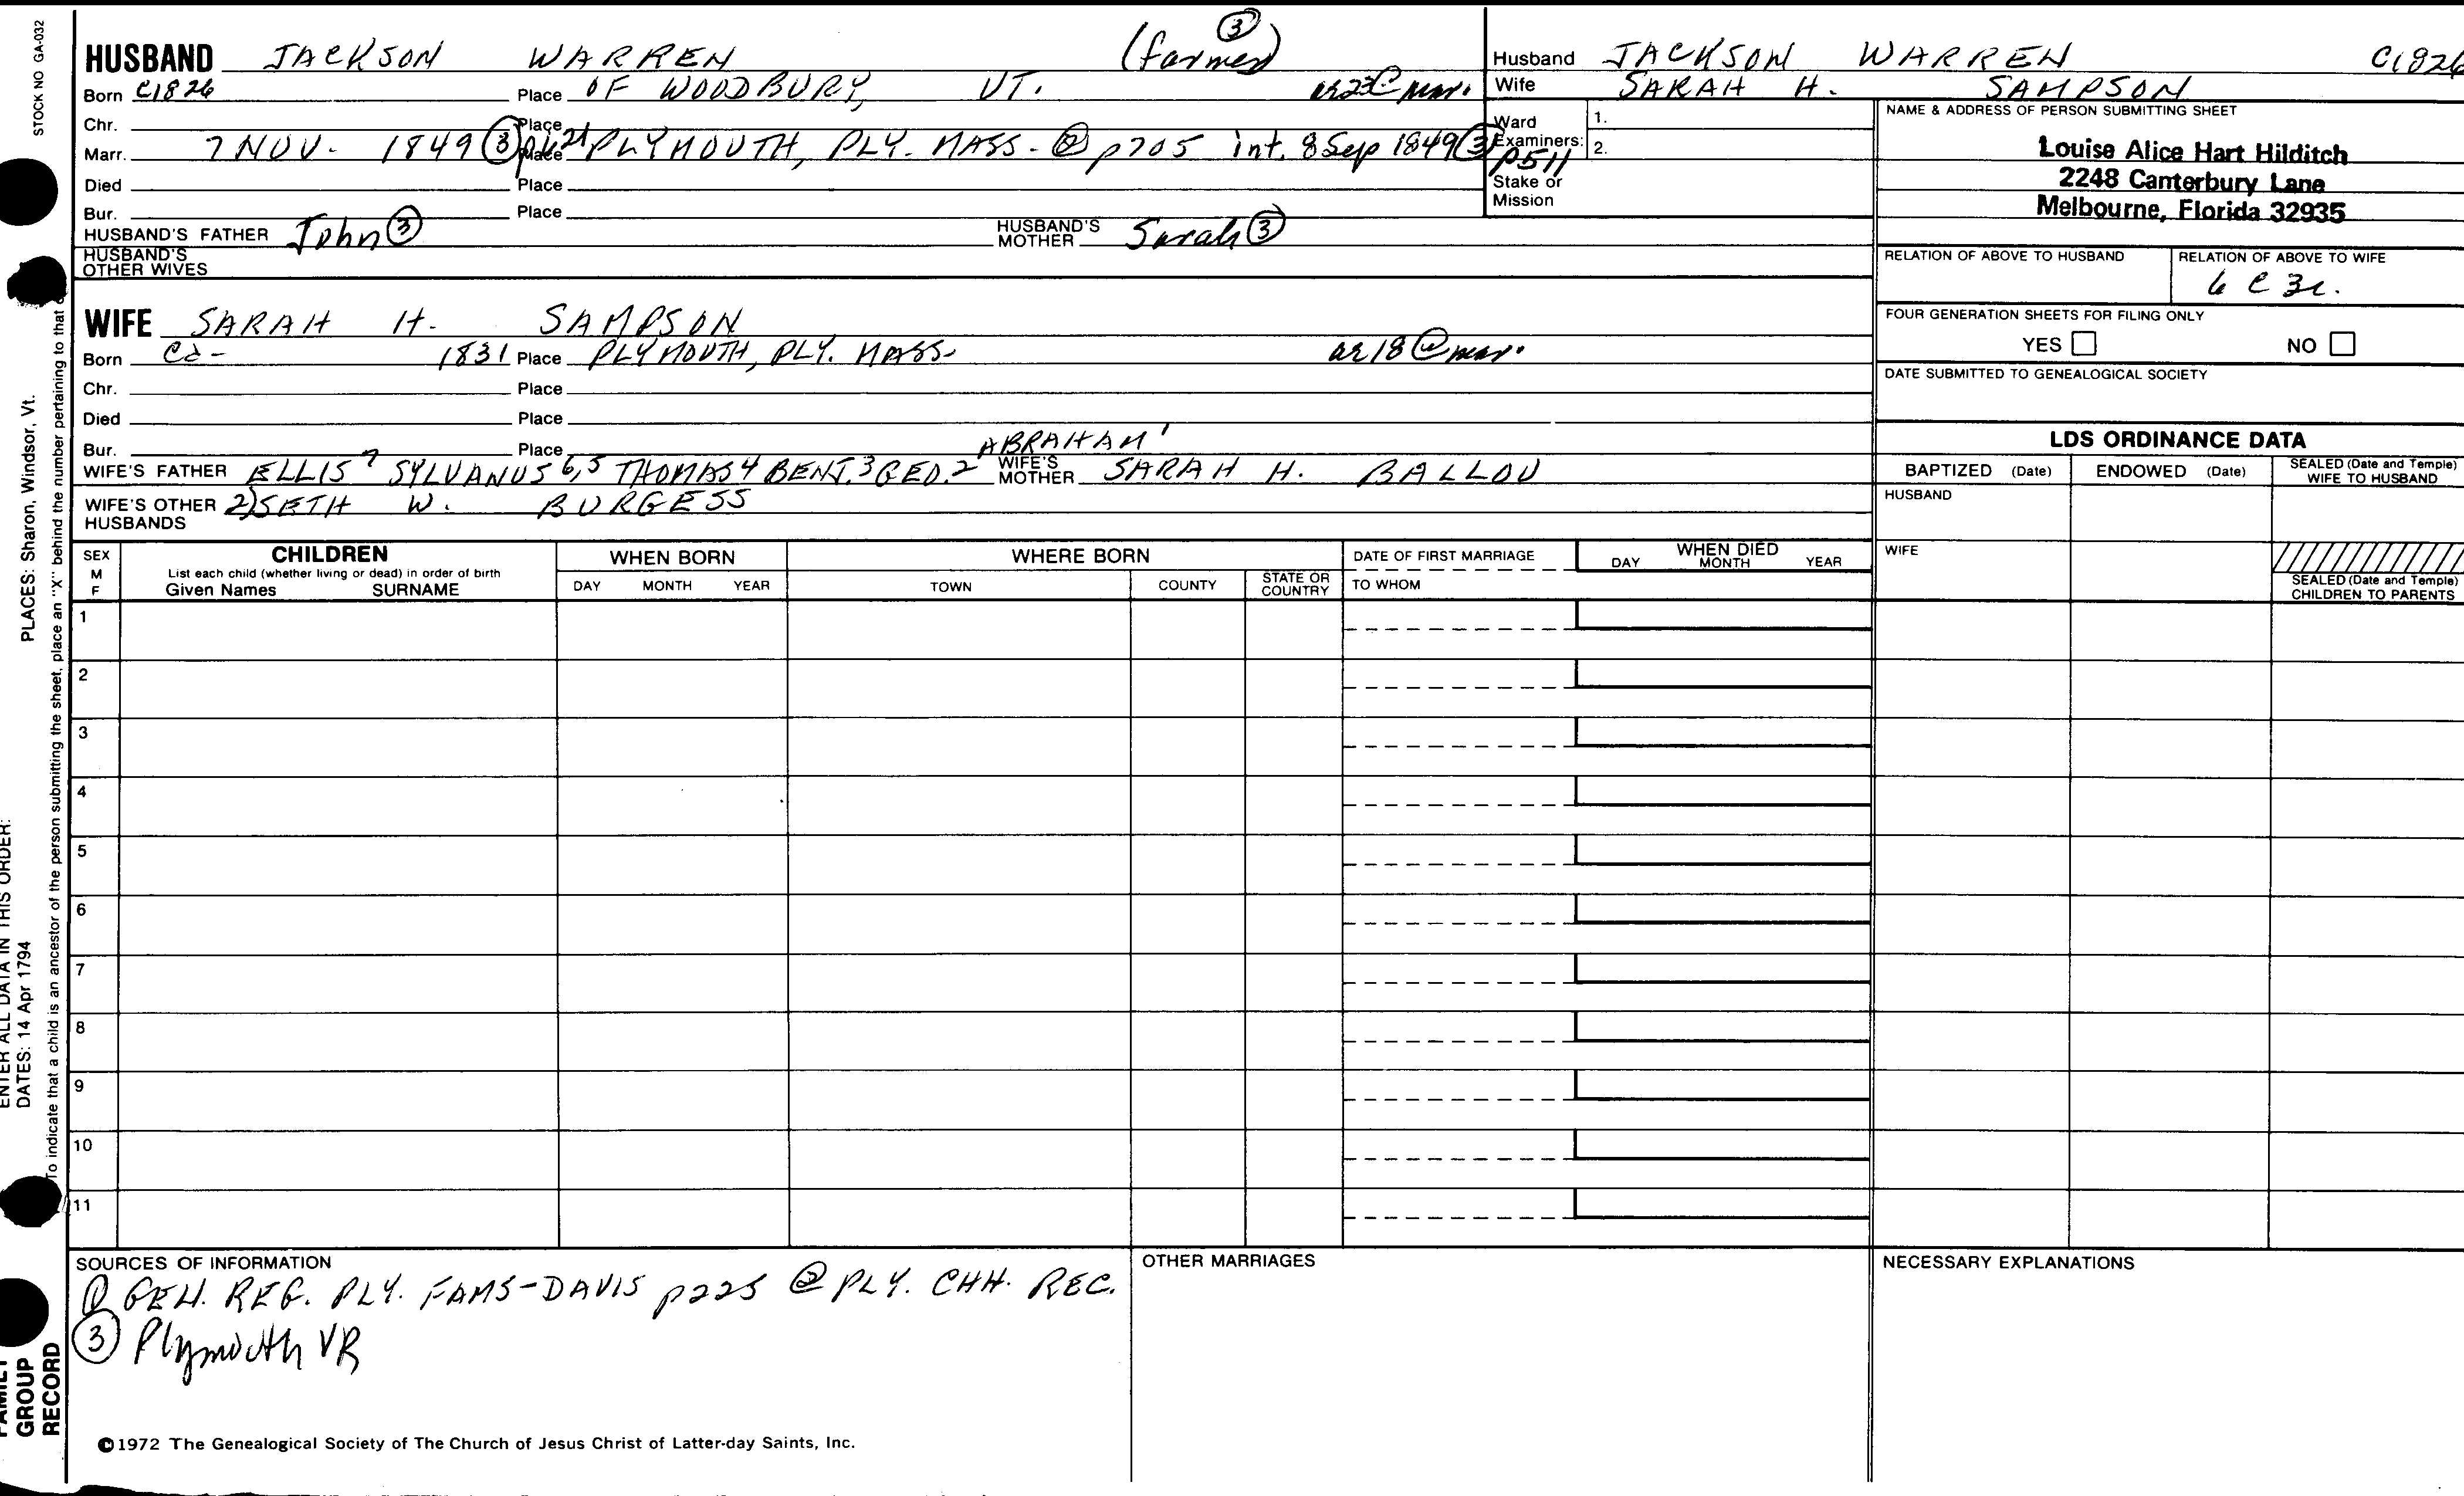 STOCK NO GA-032
HUSBAND JACKSON WARREN (farmer) ③
Born C1826 Place OF WOODBURY, VT. ae 23 @ mar.
Chr. Place
Marr. 7 NOV. 1849 ③ Place PLYMOUTH, PLY. MASS- ② p705 int. 8 Sep 1849 ③ p511
Died Place
Bur. Place
HUSBAND'S FATHER John ③ HUSBAND'S MOTHER Sarah ③
HUSBAND'S OTHER WIVES
WIFE SARAH H. SAMPSON
Born Ca- 1831 Place PLYMOUTH, PLY. MASS- ae 18 @ mar.
Chr. Place
Died Place
Bur. Place ABRAHAM 1
WIFE'S FATHER ELLIS 7 SYLVANUS 6,5 THOMAS 4 BENJ. 3 GEO. 2 WIFE'S MOTHER SARAH H. BALLOU
WIFE'S OTHER HUSBANDS 2) SETH W. BURGESS
Husband JACKSON WARREN C1826
Wife SARAH H. SAMPSON
Ward
Examiners: 1.
2.
Stake or Mission
NAME & ADDRESS OF PERSON SUBMITTING SHEET
Louise Alice Hart Hilditch
2248 Canterbury Lane
Melbourne, Florida 32935
RELATION OF ABOVE TO HUSBAND RELATION OF ABOVE TO WIFE
6 C 3 r.
FOUR GENERATION SHEETS FOR FILING ONLY
YES NO
DATE SUBMITTED TO GENEALOGICAL SOCIETY
LDS ORDINANCE DATA
BAPTIZED (Date) ENDOWED (Date) SEALED (Date and Temple) WIFE TO HUSBAND
HUSBAND
WIFE
SEALED (Date and Temple) CHILDREN TO PARENTS
SEX M F
CHILDREN
List each child (whether living or dead) in order of birth
Given Names SURNAME
WHEN BORN
DAY MONTH YEAR
WHERE BORN
TOWN COUNTY STATE OR COUNTRY
DATE OF FIRST MARRIAGE
TO WHOM
WHEN DIED
DAY MONTH YEAR
1
2
3
4
5
6
7
8
9
10
11
SOURCES OF INFORMATION
① GEN. REG. PLY. FAMS-DAVIS p225 ② PLY. CHH. REC.
③ Plymouth VR
OTHER MARRIAGES
NECESSARY EXPLANATIONS
©1972 The Genealogical Society of The Church of Jesus Christ of Latter-day Saints, Inc.
FAMILY GROUP RECORD
ENTER ALL DATA IN THIS ORDER:
DATES: 14 Apr 1794
PLACES: Sharon, Windsor, Vt.
To indicate that a child is an ancestor of the person submitting the sheet, place an "X" behind the number pertaining to that